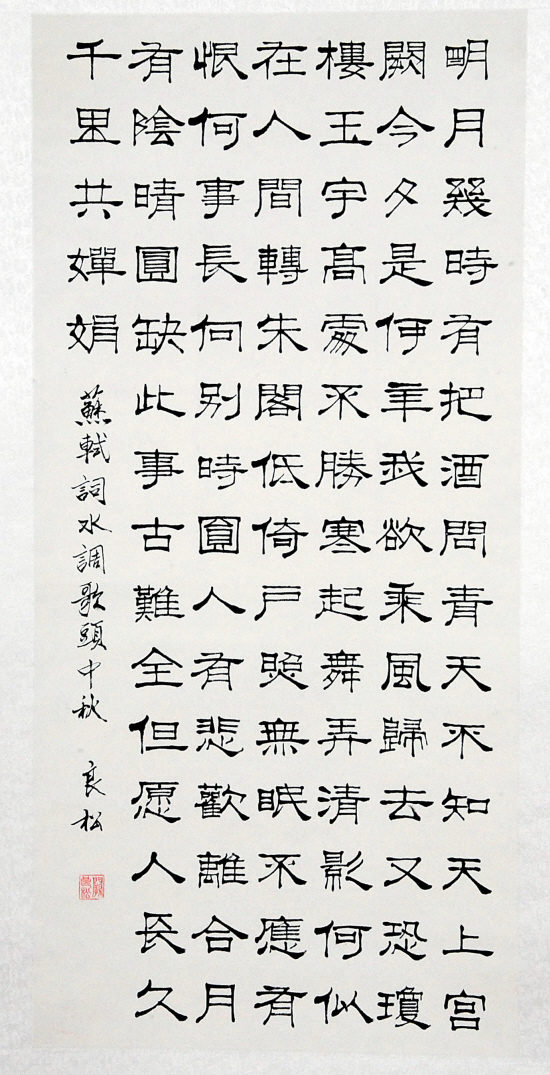 明月幾時有把酒問青天不知天上宮
闕今夕是伊年我欲乘風歸去又恐瓊
樓玉宇高處不勝寒起舞弄清影何似
在人間轉朱閣低倚戶照無眠不應有
恨何事長向别時圓人有悲歡離合月
有陰晴圓缺此事古難全但愿人長久
千里共嬋娟
蘇軾詞水調歌頭中秋 良松